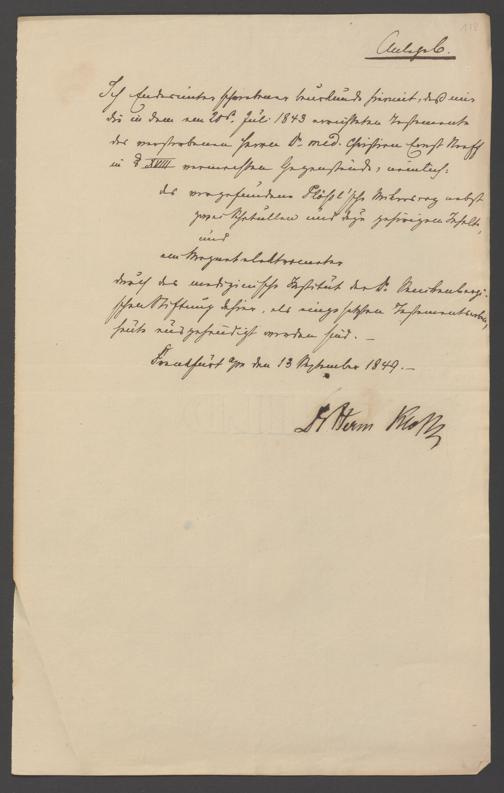 118
Anlage C.
Ich Endesunterschriebener beurkunde hiermit, daß mir
die in dem am 20t. Juli 1843 errichteten Testamente
des verstorbenen Herrn Dr. med. Christian Ernst Neeff
in § XVIII vermachten Gegenstände, nämlich:
das vorgefundene Plößl'sche Mikroscop nebst
zwei Schatullen und dazu gehörigem Inhalte,
und
ein Magnetelektromotor
durch das medizinische Institut der Dr. Senckenbergi-
schen Stiftung dahier, als eingesetzten Testamentserben,
heute ausgehändigt worden sind. —
Frankfurt a/m den 13 September 1849. —
Dr Herm Kloß